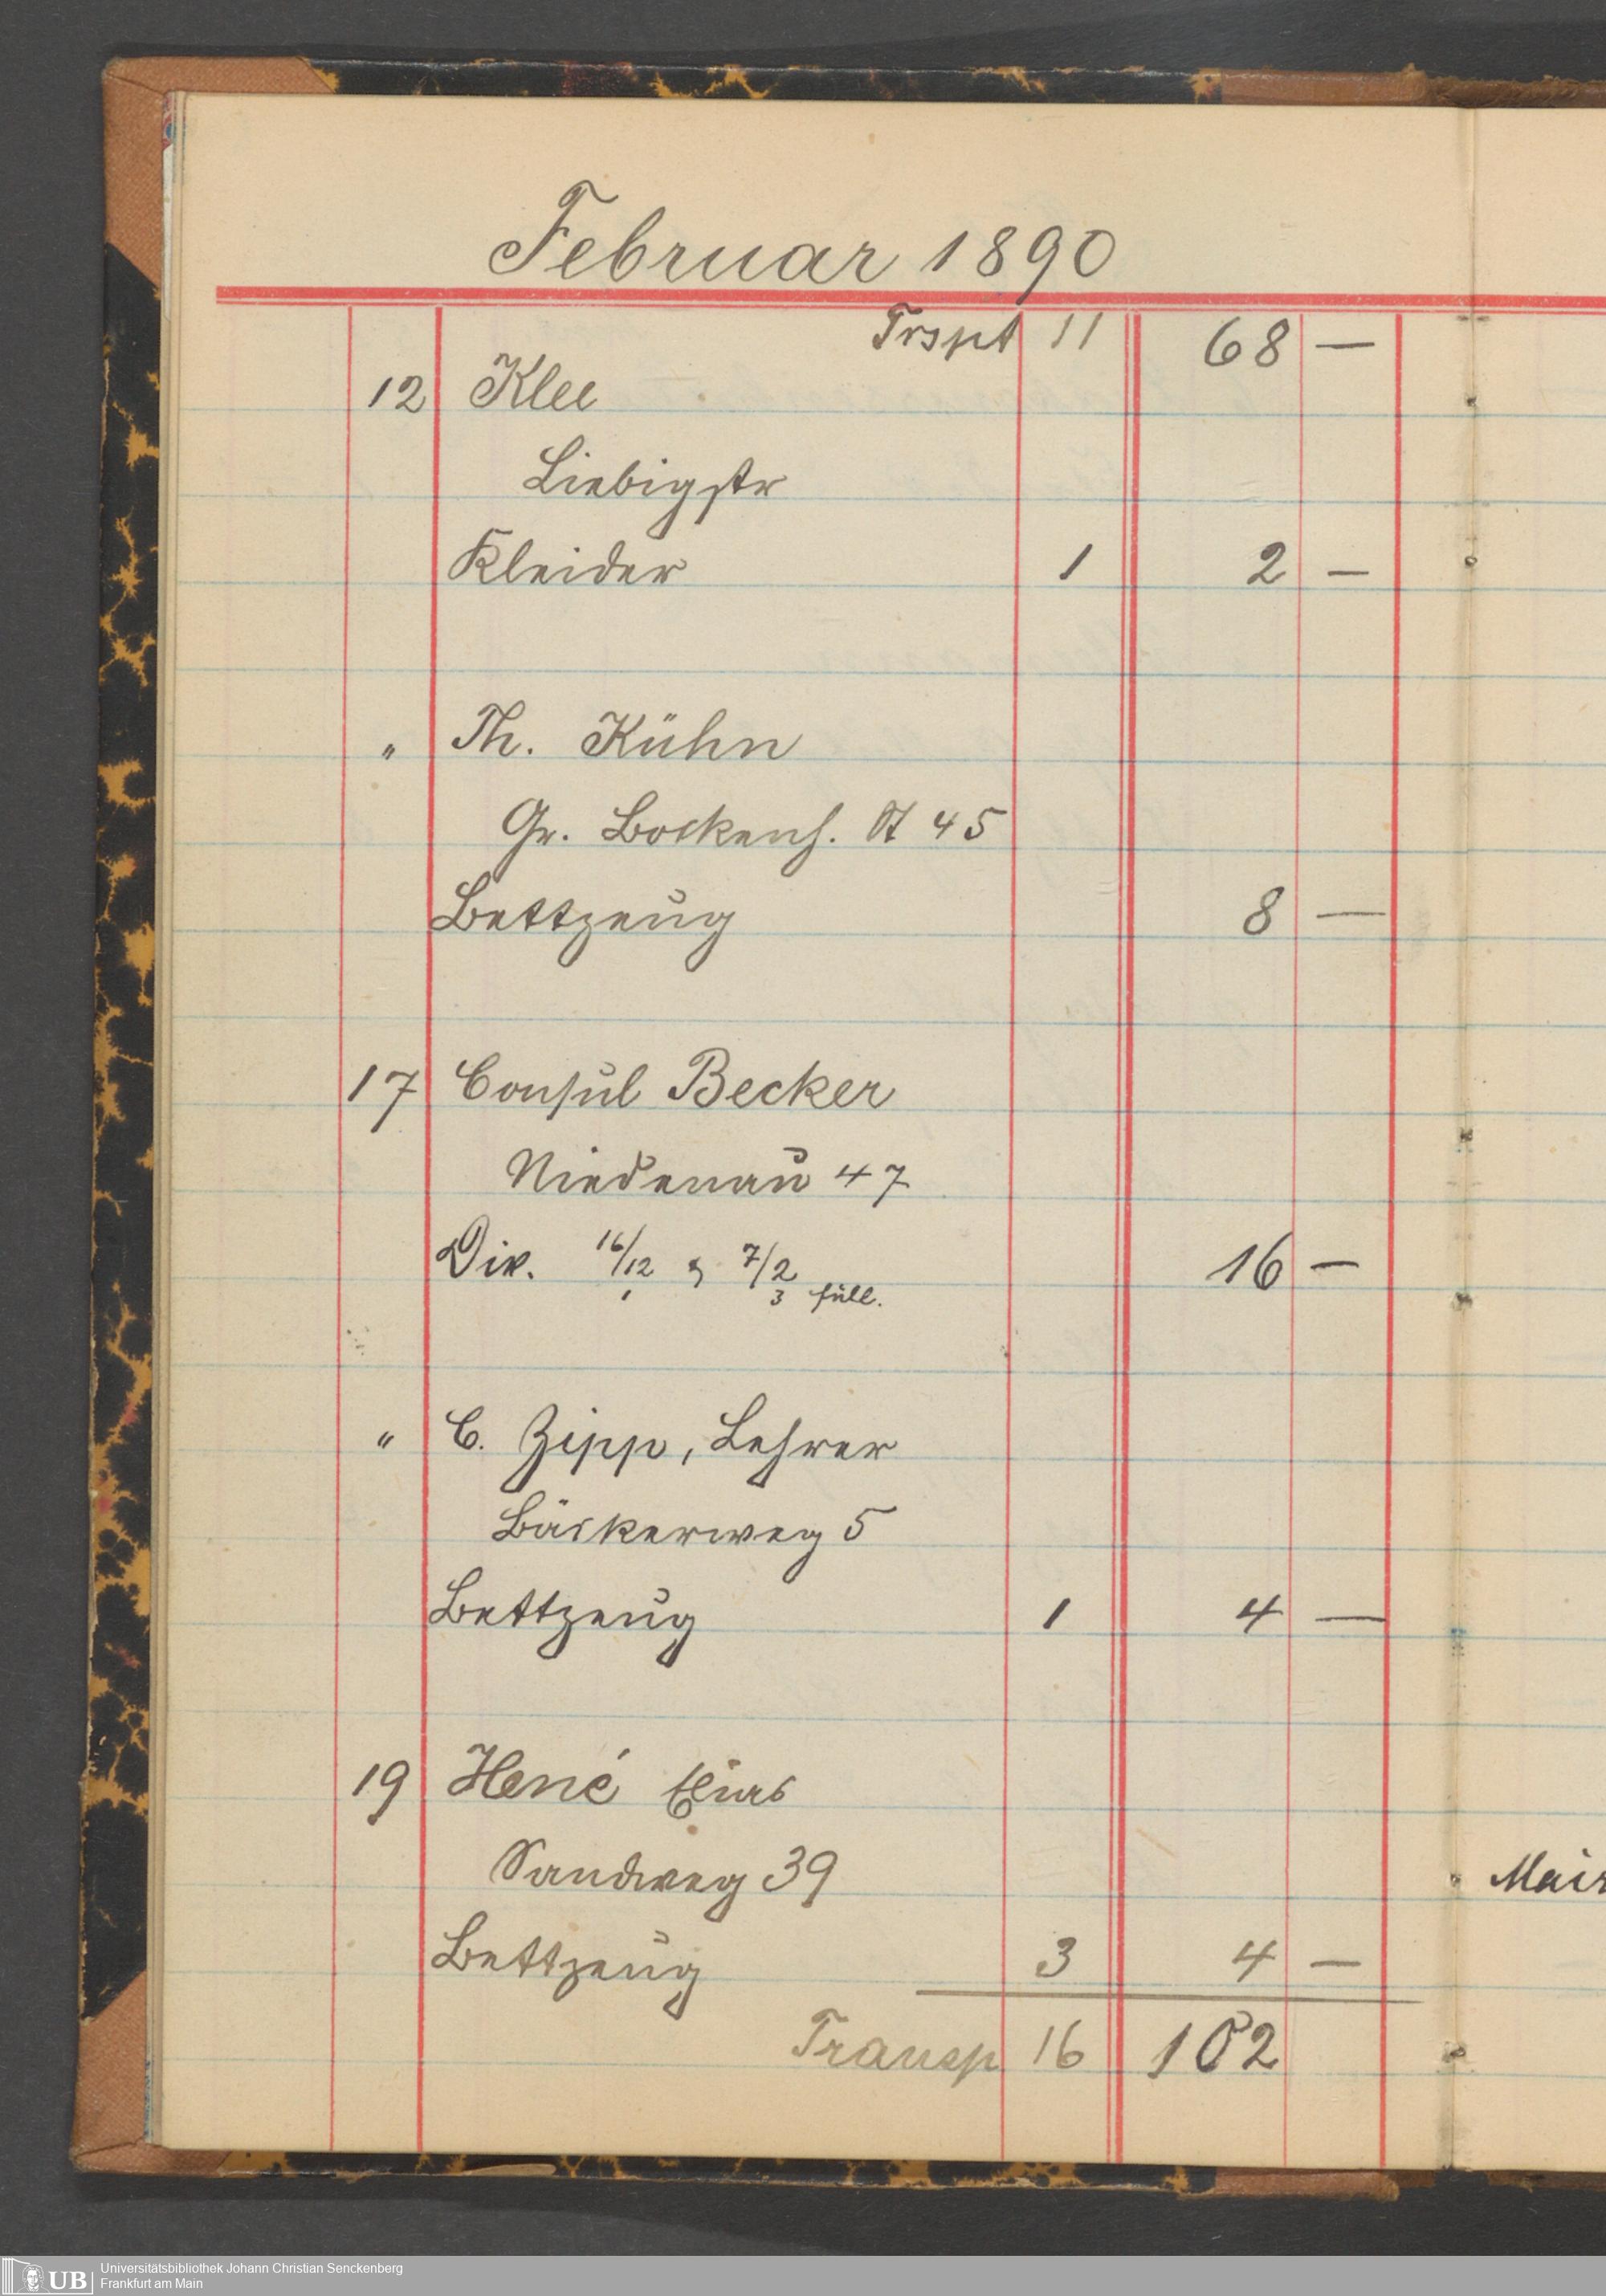 Februar 1890
Trspt 11 68 —
12 Klee
Liebigstr
Kleider 1 2 —
" Th. Kühn
Gr. Bockenh. St 45
Bettzeug 8 —
17 Consul Becker
Niedenau 47
Div. 16/12 & 7/2 16 —
1 3 füll.
" C. Zipp, Lehrer
Bäckerweg 5
Bettzeug 1 4 —
19 Hené
Sandweg 39
Bettzeug 3 4 —
Transp 16 102
UB Universitätsbibliothek Johann Christian Senckenberg
Frankfurt am Main